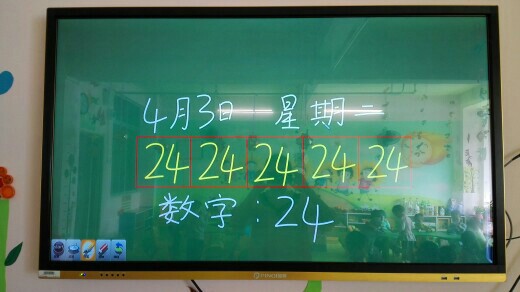 4月3日 星期二
24 24 24 24 24
数字:24